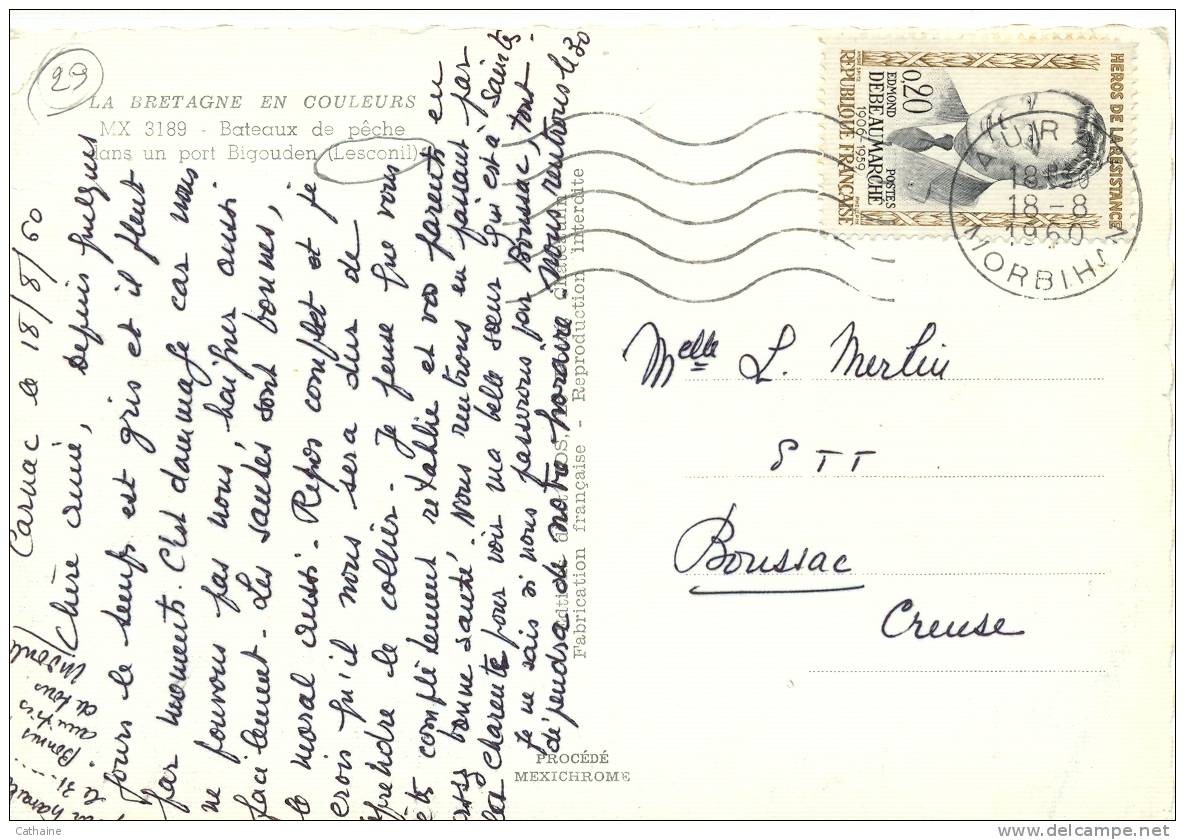 29
LA BRETAGNE EN COULEURS
MX 3189 - Bateaux de pêche
dans un port Bigouden (Lesconil)
Carnac le 18/8/60
Chère amie, Depuis quelques
jours le temps est gris et il pleut
par moments. C'est dommage car nous
ne pouvons pas nous baigner aussi
facilement. Les santés sont bonnes,
le moral aussi. Repos complet et je
crois qu'il nous sera dur de
reprendre le collier. Je pense que vous
êtes complètement rétablie et vos parents en
bonne santé. Nous rentrons en passant par
les Charente pour voir ma belle sœur qui est à Saintes.
Je ne sais si nous passerons par Boussac, tout
dépendra de notre horaire. Nous rentrons le 30
le 31
Bonnes
amitiés
à tous
Fabrication française - Reproduction interdite
PROCÉDÉ
MEXICHROME
HEROS DE LA RESISTANCE
0,20
EDMOND
DEBEAUMARCHÉ
1906-1959
POSTES
REPUBLIQUE FRANÇAISE
18-8
1960
MORBIHAN
Melle L. Merlin
PTT
Boussac
Creuse
Cathaine
http://www.delcampe.net